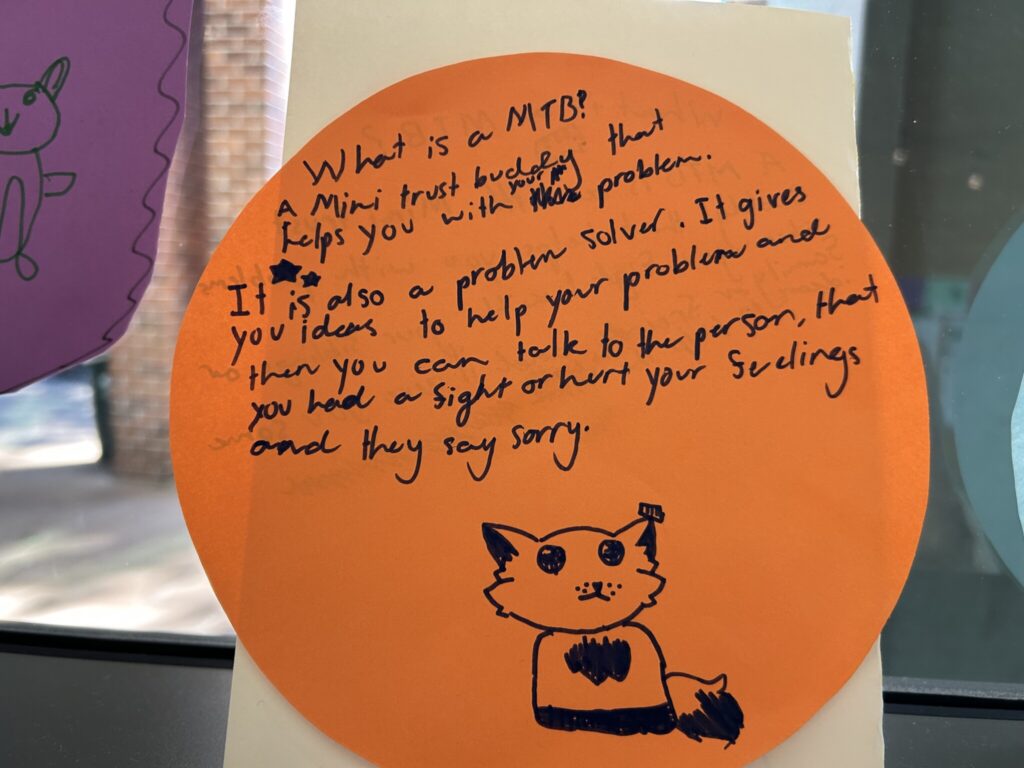 What is a MTB?
A Mini trust buddy that
helps you with your problem.
It is also a problem solver. It gives
you ideas to help your problem and
then you can talk to the person, that
you had a fight or hurt your feelings
and they say sorry.